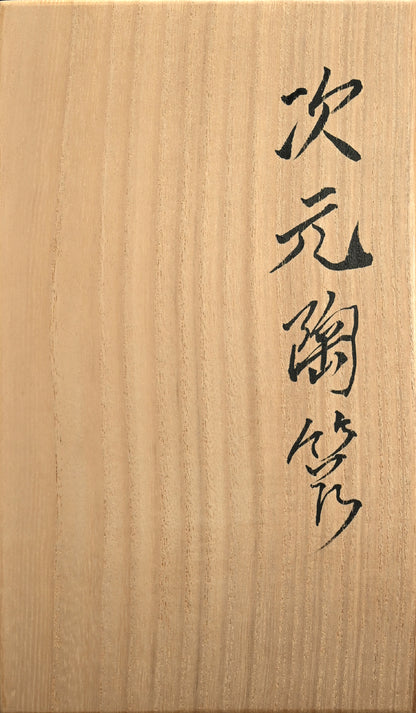 次元陶筥